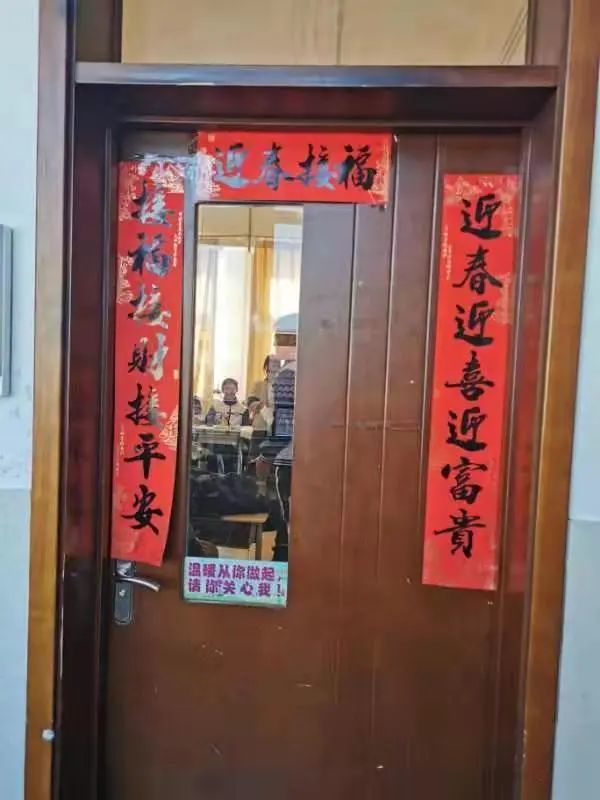 迎春接福
迎春迎喜迎富貴
接福接財接平安
温暖从你做起，
请你关心我！